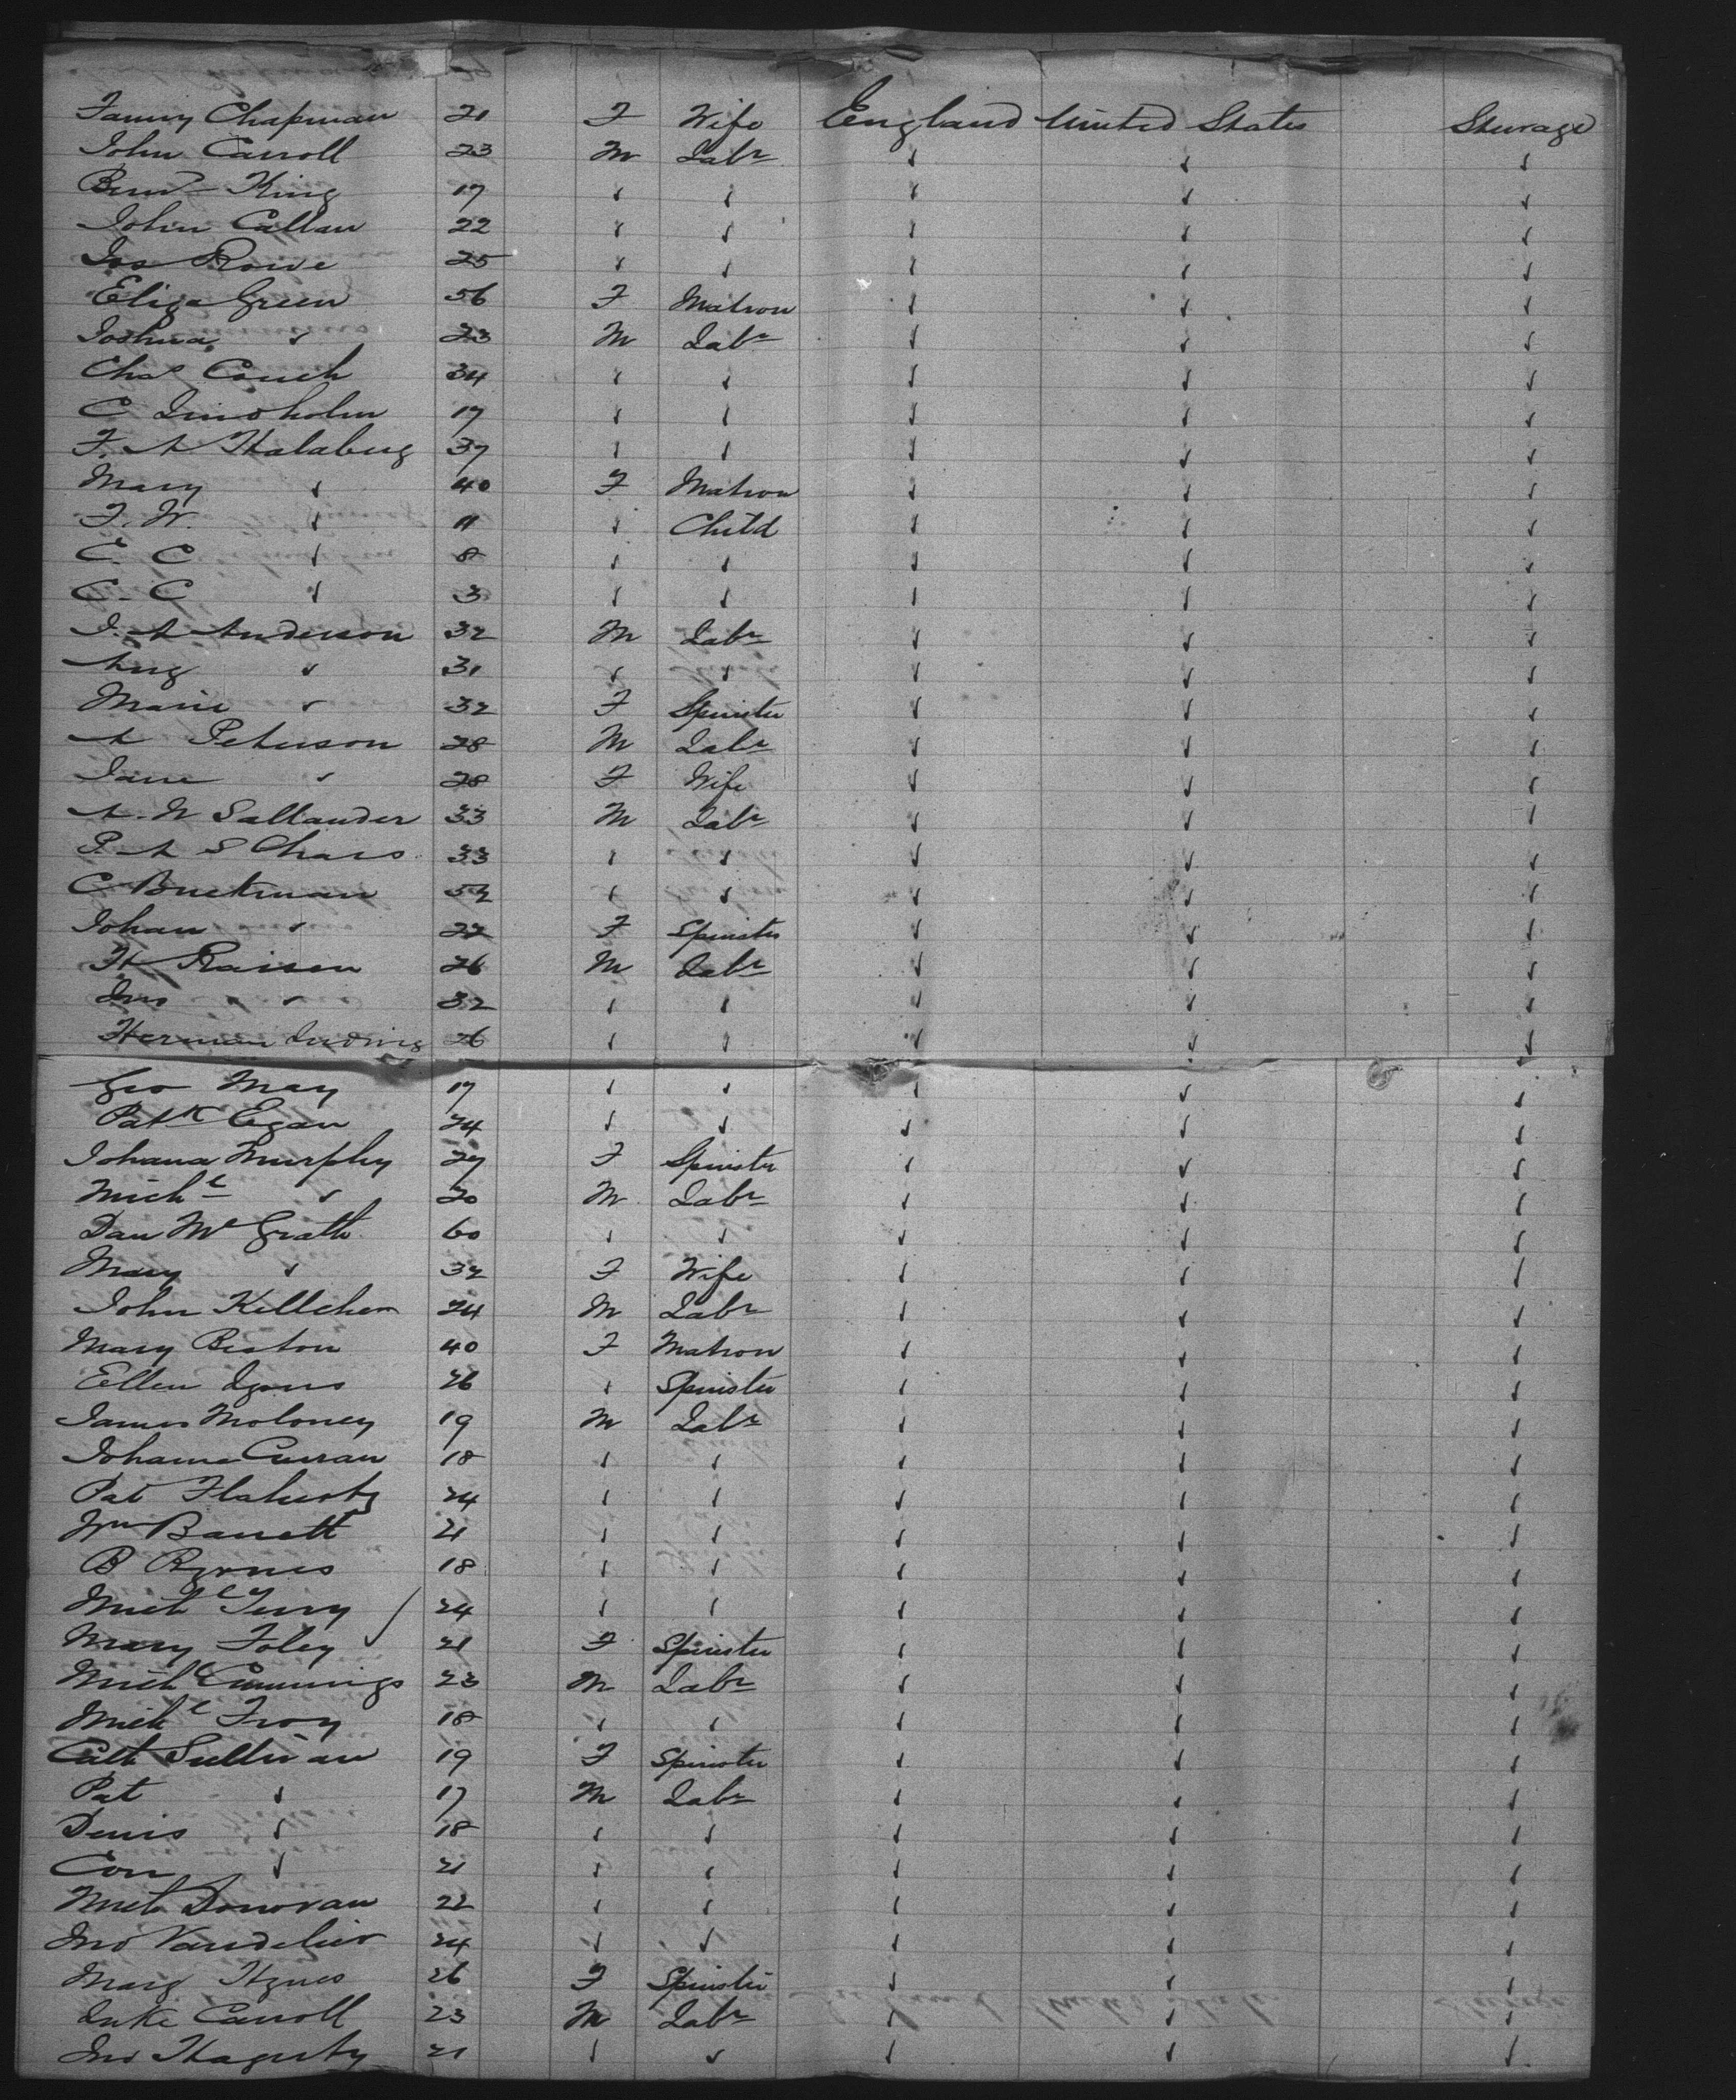 Fanny Chapman 21 F Wife England United States Steerage
John Carroll 23 M Labr ✓ ✓ ✓
King 17 ✓ ✓ ✓ ✓ ✓
John Callan 22 ✓ ✓ ✓ ✓ ✓
Jos Rowe 25 ✓ ✓ ✓ ✓ ✓
Eliza Green 56 F Matron ✓ ✓ ✓
Joshua ✓ 23 M Labr ✓ ✓ ✓
Chas Couch 34 ✓ ✓ ✓ ✓ ✓
C Lindholm 17 ✓ ✓ ✓ ✓ ✓
F. A Halaberg 37 ✓ ✓ ✓ ✓ ✓
Mary ✓ 40 F Matron ✓ ✓ ✓
F. W. ✓ 11 ✓ Child ✓ ✓ ✓
C. C ✓ 8 ✓ ✓ ✓ ✓ ✓
C. C ✓ 3 ✓ ✓ ✓ ✓ ✓
J. A Anderson 32 M Labr ✓ ✓ ✓
Aug ✓ 31 ✓ ✓ ✓ ✓ ✓
Marie ✓ 32 F Spinster ✓ ✓ ✓
A Peterson 28 M Labr ✓ ✓ ✓
Jane ✓ 28 F Wife ✓ ✓ ✓
A. N Sallander 33 M Labr ✓ ✓ ✓
P. A S 33 ✓ ✓ ✓ ✓ ✓
C Buckman 52 ✓ ✓ ✓ ✓ ✓
Johan ✓ 22 F Spinster ✓ ✓ ✓
H Raisen 26 M Labr ✓ ✓ ✓
Jno ✓ 32 ✓ ✓ ✓ ✓ ✓
Herman Ludwig 26 ✓ ✓ ✓ ✓ ✓
Geo May 17 ✓ ✓ ✓ ✓ ✓
Patk Egan 24 ✓ ✓ ✓ ✓ ✓
Johana Murphy 27 F Spinster ✓ ✓ ✓
Michl ✓ 20 M Labr ✓ ✓ ✓
Dan McGrath 60 ✓ ✓ ✓ ✓ ✓
Mary ✓ 32 F Wife ✓ ✓ ✓
John Killeher 24 M Labr ✓ ✓ ✓
Mary Beston 40 F Matron ✓ ✓ ✓
Ellen Lyons 26 ✓ Spinster ✓ ✓ ✓
James Moloney 19 M Labr ✓ ✓ ✓
Johanna Curran 18 ✓ ✓ ✓ ✓ ✓
Pat Flaherty 24 ✓ ✓ ✓ ✓ ✓
Wm Barrett 21 ✓ ✓ ✓ ✓ ✓
B Byrnes 18 ✓ ✓ ✓ ✓ ✓
Michl Terry ✓ 24 ✓ ✓ ✓ ✓ ✓
Mary Foley 21 F Spinster ✓ ✓ ✓
Michl Cummings 23 M Labr ✓ ✓ ✓
Michl Troy 18 ✓ ✓ ✓ ✓ ✓
Cath Sullivan 19 F Spinster ✓ ✓ ✓
Pat ✓ 17 M Labr ✓ ✓ ✓
Denis ✓ 18 ✓ ✓ ✓ ✓ ✓
Con ✓ 21 ✓ ✓ ✓ ✓ ✓
Mich Donovan 22 ✓ ✓ ✓ ✓ ✓
Jno Vandelier 24 ✓ ✓ ✓ ✓ ✓
Marg Hynes 26 F Spinster ✓ ✓ ✓
Luke Carroll 23 M Labr ✓ ✓ ✓
Jno Hagerty 21 ✓ ✓ ✓ ✓ ✓